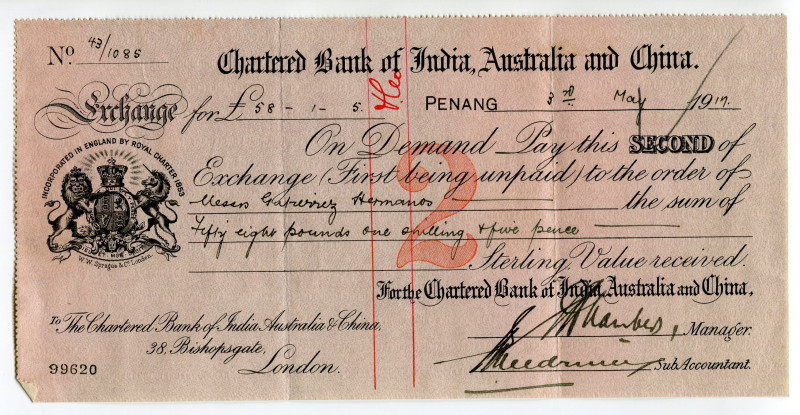 Nº 43/1085
Chartered Bank of India, Australia and China.
Exchange for £58-1-5. PENANG 3rd May 1917.
On Demand Pay this SECOND of
Exchange (First being unpaid) to the order of
Messrs Gutierrez Hermanos the sum of
Fifty eight pounds one shilling & five pence
Sterling, Value received.
2
INCORPORATED IN ENGLAND BY ROYAL CHARTER 1853
W.W. Sprague & Co. London.
For the Chartered Bank of India, Australia and China,
Manager.
Sub Accountant.
To The Chartered Bank of India Australia & China,
38, Bishopsgate,
London.
99620